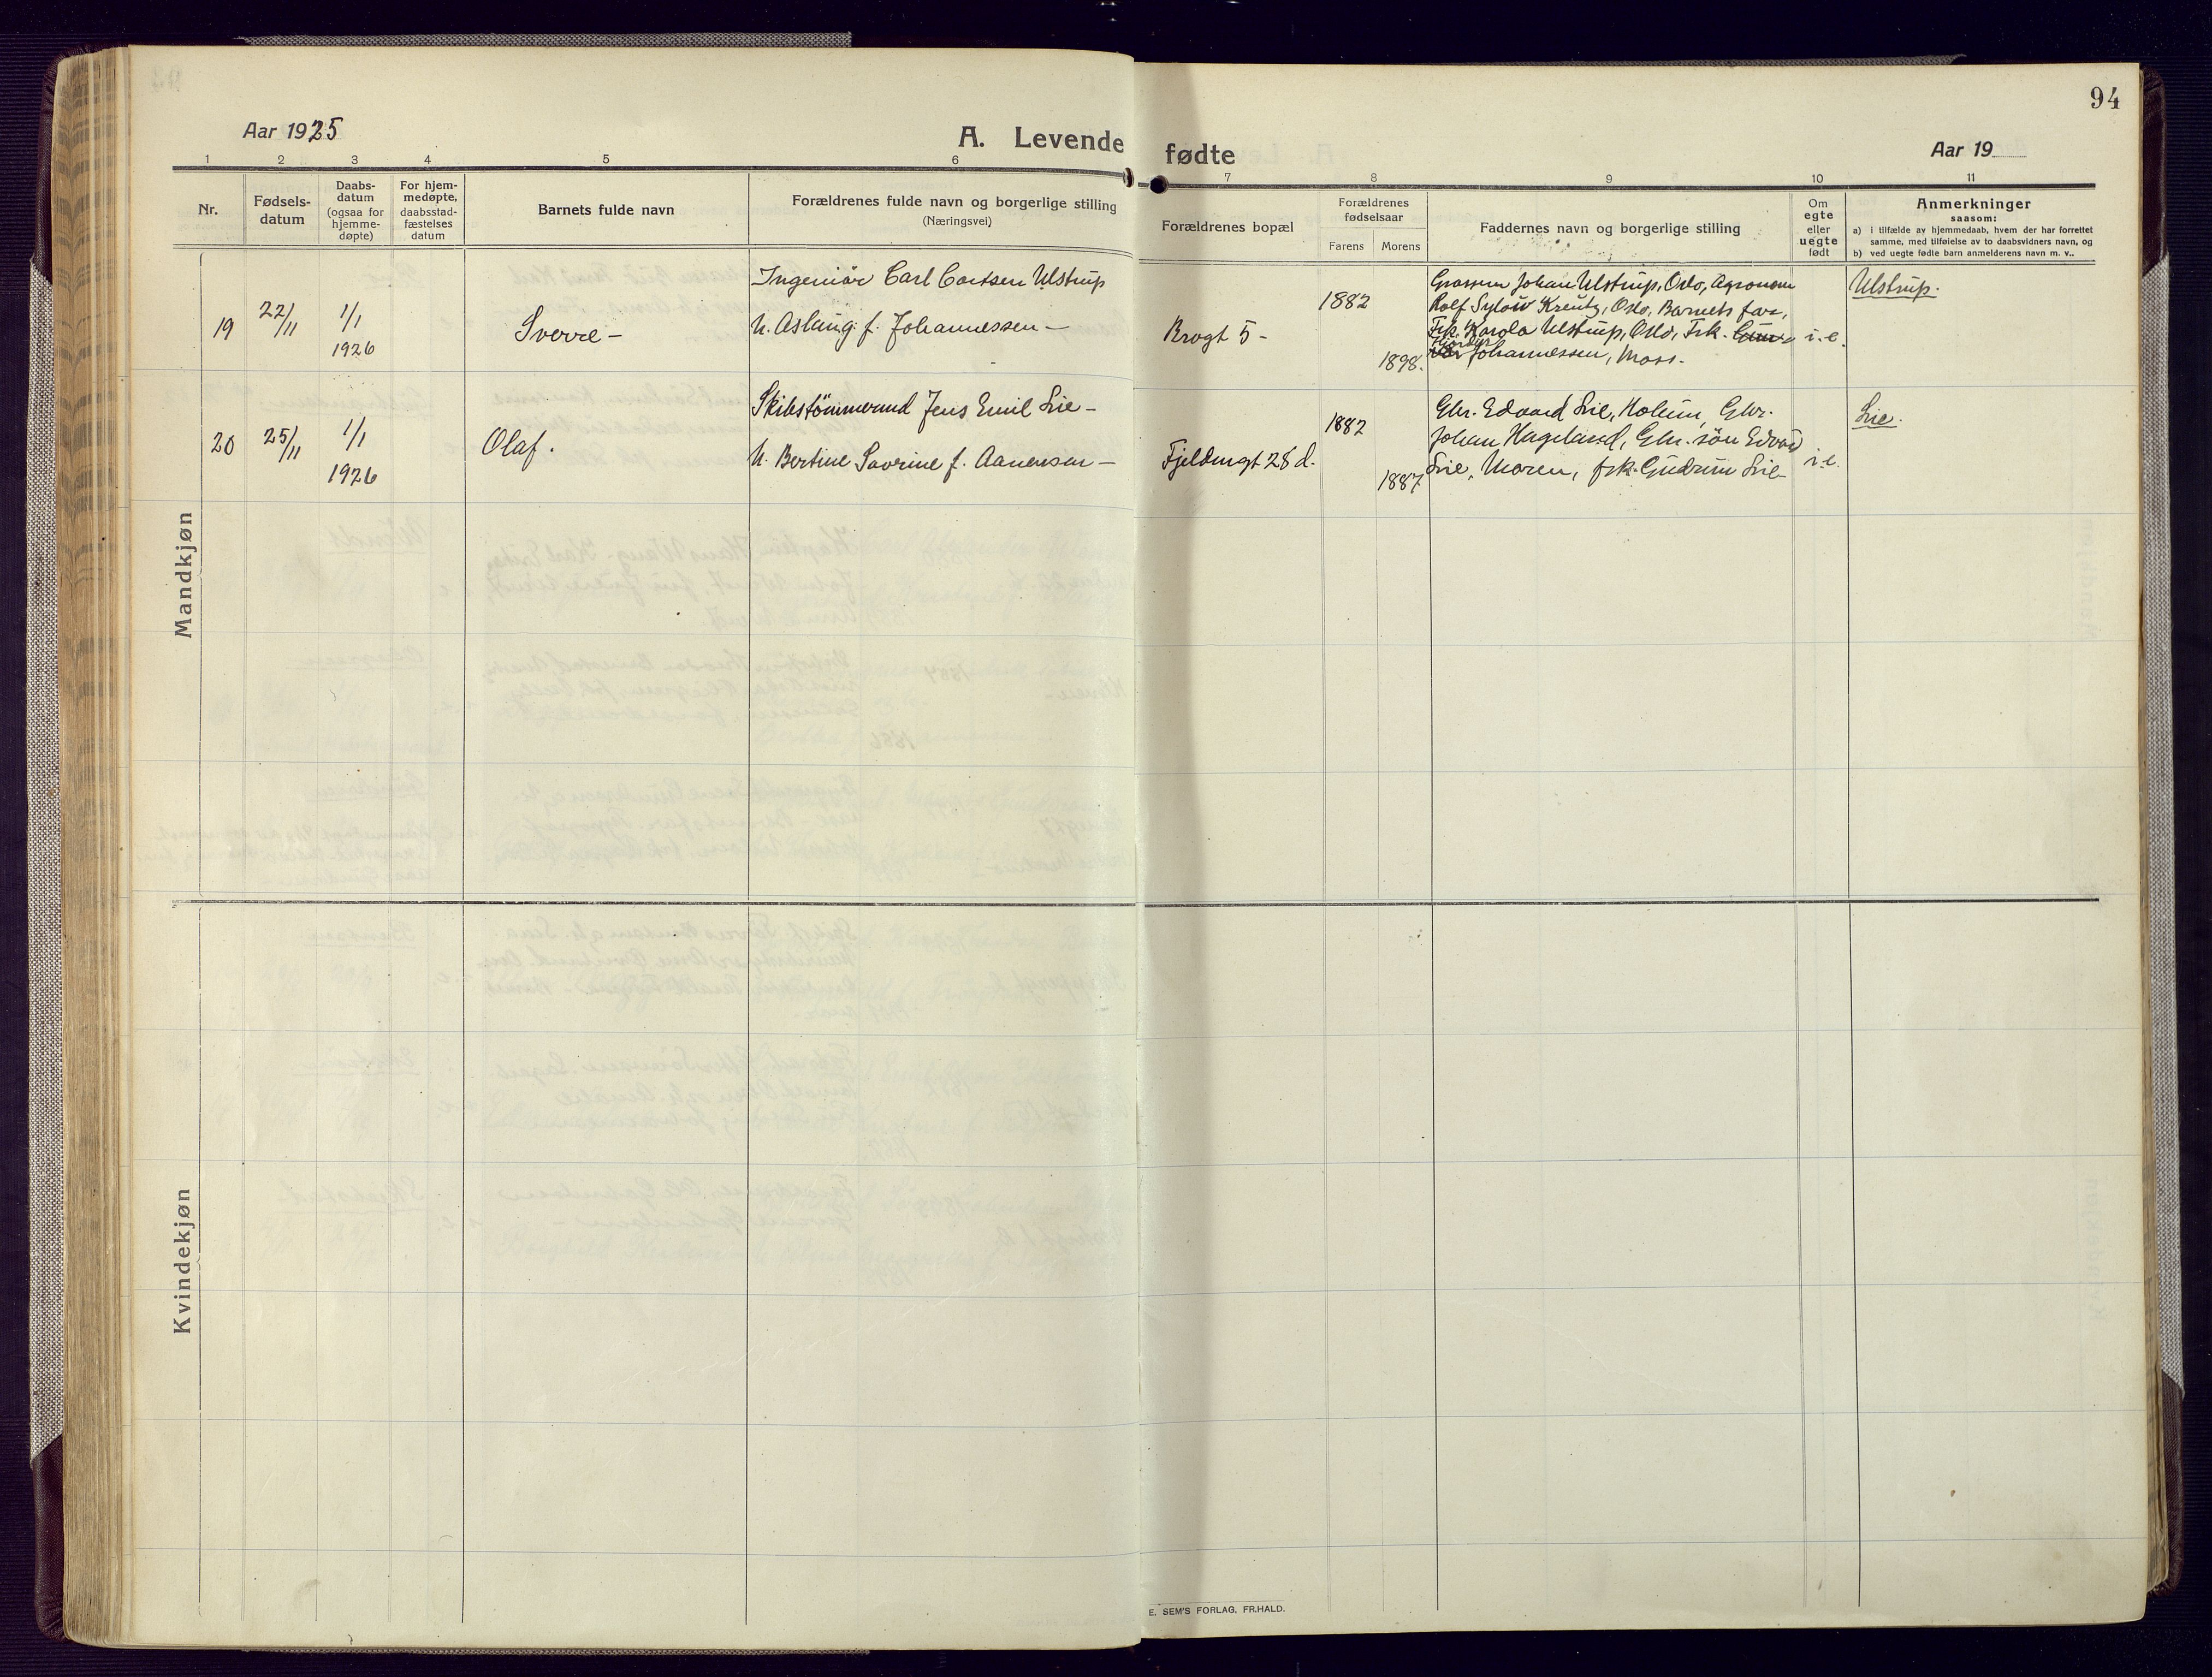 94
Aar 1925
A. Levende fødte
Aar 19
1 2 3 4 5 6 7 8 9 10 11
Nr.
Fødsels-
datum
Daabs-
datum
(ogsaa for
hjemme-
døpte)
For hjem-
medøpte,
daabsstad-
fæstelses
datum
Barnets fulde navn
Forældrenes fulde navn og borgerlige stilling
(Næringsvei)
Forældrenes bopæl
Forældrenes
fødselsaar
Farens Morens
Faddernes navn og borgerlige stilling
Om
egte
eller
uegte
født
Anmerkninger
saasom:
a) i tilfælde av hjemmedaab, hvem der har forrettet
samme, med tilføielse av to daabsvidners navn, og
b) ved uegte fødte barn anmelderens navn m. v..
Mandkjøn
19
22/11
1/1
1926
Sverre –
Ingeniør Carl Coctsen Ulstrup
h. Aslaug f. Johannessen –
Brogt 5 –
1882
1898.
Grosserer Johan Ulstrup, Oslo, Agronom
Rolf Sylow Kreutz, Oslo, Barnets far,
Frk. Karola Ulstrup, Oslo, Frk.
Hjørdis
Johannessen, Moss.
i.e.
Ulstrup.
20
25/11
1/1
1926
Olaf.
Skibstømmermd Jens Emil Lie –
h. Bertine Savrine f. Aanensen –
Fjeldengt 28 d.
1882
1887
Gbr. Edvard Lie, Holum, Gbr.
Johan Hageland, Gbr. søn Edvard
Lie, Moren, frk. Gudrun Lie
i.e.
Lie.
Kvindekjøn
E. SEM'S FORLAG, FR.HALD.